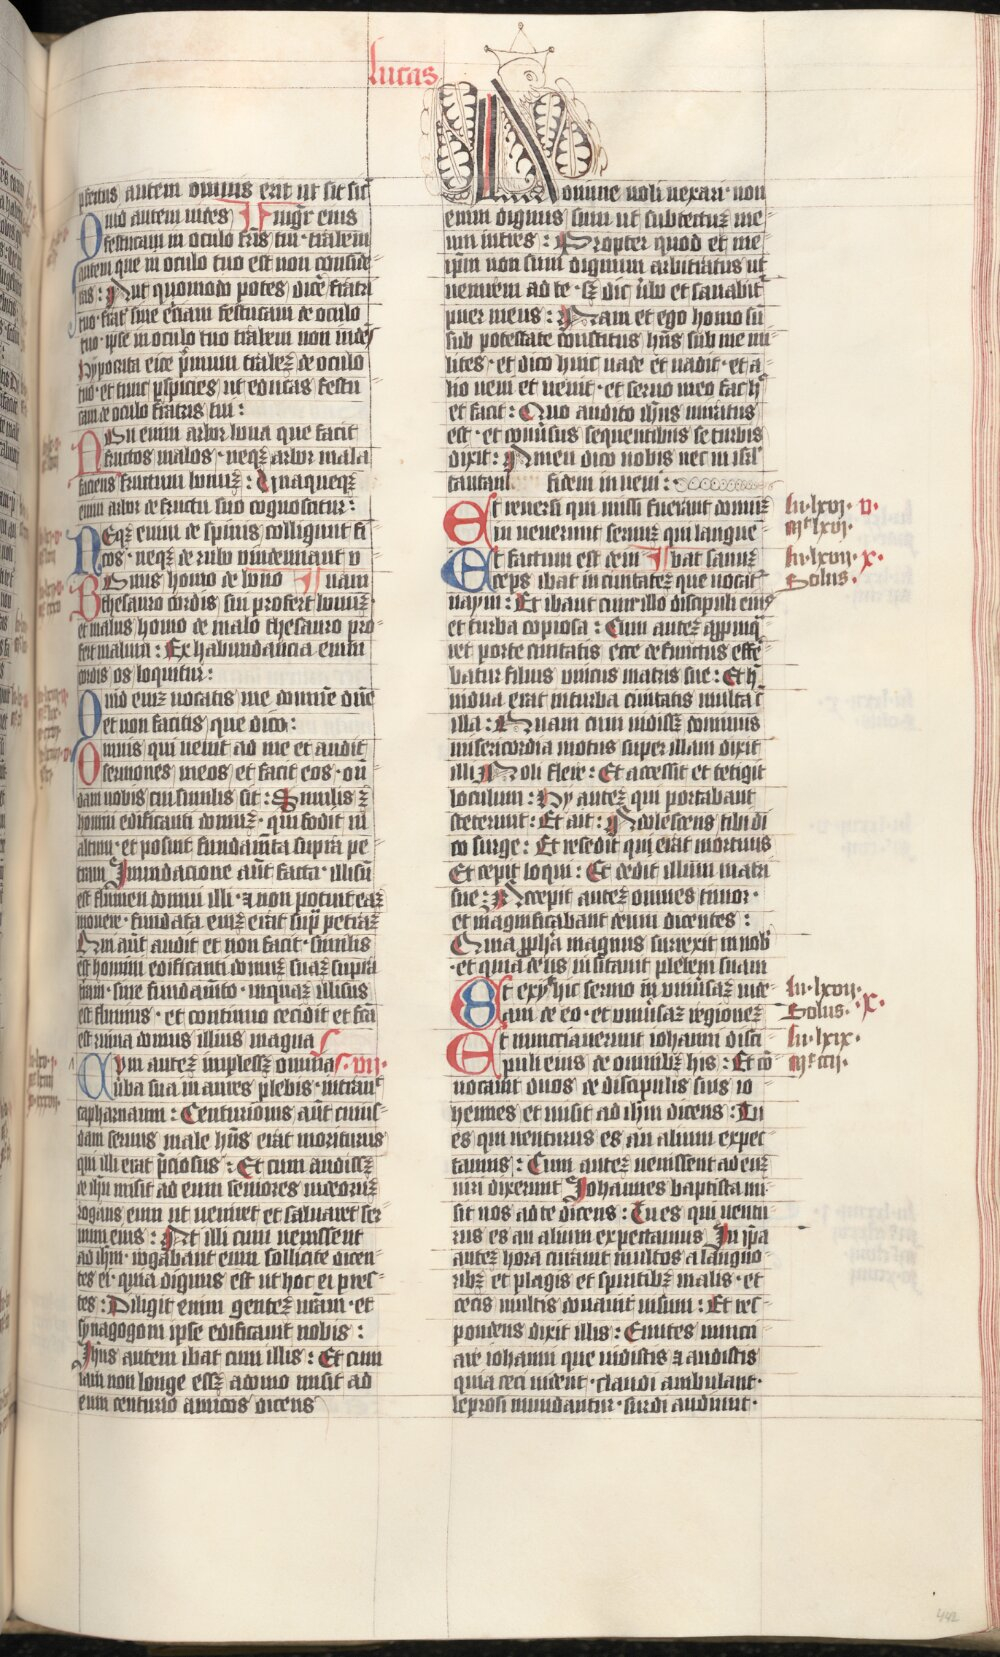 lucas
pfectus autem omnis erit ut sit sic
Quid autem uides mgr eius
festucam in oculo fris tui · trabem
autem que in oculo tuo est non conside
ras : Aut quomodo potes dice fratri
tuo · frat sine eiciam festucam de oculo
tuo · ipse in oculo tuo trabem non uides
hypocrita eice pmum trabez de oculo
tuo · et tunc pspicies ut educas festu
cam de oculo fratris tui :
Non enim arbor bona que facit
fructos malos · neqz arbor mala
faciens fructum bonuz : Unaqueqz
enim arbor de fructu suo cognoscitur :
Neqz enim de spinis colligunt fi
cos · neqz de rubo uindemiant u
Bonus homo de bono uam
thesauro cordis sui profert bonuz ·
et malus homo de malo thesauro pro
fert malum : Ex habundancia enim
cordis os loquitur :
Quid enim uocatis me domine dne
et non facitis que dico :
Omnis qui uenit ad me et audit
sermones meos et facit eos · on
dam uobis cui similis sit : Similis z
homini edificanti domuz · qui fodit in
altum · et posuit fundamta supra pe
tram Inundacione aut facta · illisu
est flumen domui illi · z non potuit eaz
mouere · fundata enim erat sup petraz
Qui aut audit et non facit · similis
est homini edificanti domuz suaz supra
tram · sine fundamto · inquaz illisus
est fluuius · et continuo cecidit et fca
est ruina domus illius magna
Cum autez implessz omnia · vii ·
uba sua in aures plebis · intrauit
capharnaum : Centurionis aut cuius
dam seruus male hns erat moriturus
qui illi erat pciosus : Et cum audissz
de ihu misit ad eum seniores iudeoruz
rogans eum ut ueniret et saluaret ser
uum eius : At illi cum uenissent
ad ihm · rogabant eum sollicite dicen
tes ei · quia dignus est ut hoc ei pres
tes : Diligit enim gentez nram · et
synagogam ipse edificauit nobis :
Ihus autem ibat cum illis : Et cum
iam non longe essz a domo misit ad
eum centurio amicos dicens
Domine noli uexari · non
enim dignus sum ut sub tectuz me
um intres : Propter quod et me
ipm non sum dignum arbitratus ut
uenirem ad te · sz dic ubo et sanabit
puer meus : Nam et ego homo su
sub potestate constitus hns sub me mi
lites · et dico huic uade et uadit · et a
lio ueni et uenit · et seruo meo fac h
et facit : Quo audito ihus miratus
est · et conuisus sequentibus se turbis
dixit : Amen dico uobis nec in isrl
tantam fidem inueni :
Et reuersi qui missi fuerant domuz
in uenerunt seruuz qui langue
Et factum est dein Ibat sanuz
ceps ibat in ciuitatez que uocat
naym : Et ibant cum illo discipuli eius
et turba copiosa : Cum autez appinq
ret porte ciuitatis ecce defunctus effe
batur filius unicus matris sue : Et h
uidua erat in turba ciuitatis multa c
illa : Quam cum uidissz dominus
misericordia motus super illam dixit
illi Noli flere : Et accessit et tetigit
loculum : Hy autez qui portabant
steterunt : Et ait : Adolescens tibi di
co surge : Et resedit qui erat mortuus
Et cepit loqui : Et dedit illum matri
sue : Accepit autez omnes timor ·
et magnificabant deum dicentes :
Quia ppha magnus surrexit in nob
· et quia deus uisitauit plebem suam
Et exyt hic sermo in uniusaz iude
am de eo · et uniusaz regionez
Et nuncciauerunt iohanni disci
puli eius de omnibz his : Et co
uocauit duos de discipulis suis io
hannes et misit ad ihm dicens : Tu
es qui uenturus es an alium expec
tamus : Cum autez uenissent ad euz
uiri dixerunt Johannes baptista mi
sit nos ad te dicens : Tu es qui uentu
rus es an alium expectamus In ipa
autez hora curauit multos a languo
ribz et plagis et spiritibz malis · et
cecis multis donauit uisum : Et res
pondens dixit illis : Euntes nunci
ate iohanni que uidistis z audistis
quia ceci uident · claudi ambulant ·
leprosi mundantur · surdi audiunt ·
lu · lxvi · v ·
mt lxvi ·
lu · lxvii · x ·
Solus ·
lu · lxviii ·
Solus · x ·
lu · lxix ·
mt cii ·
442